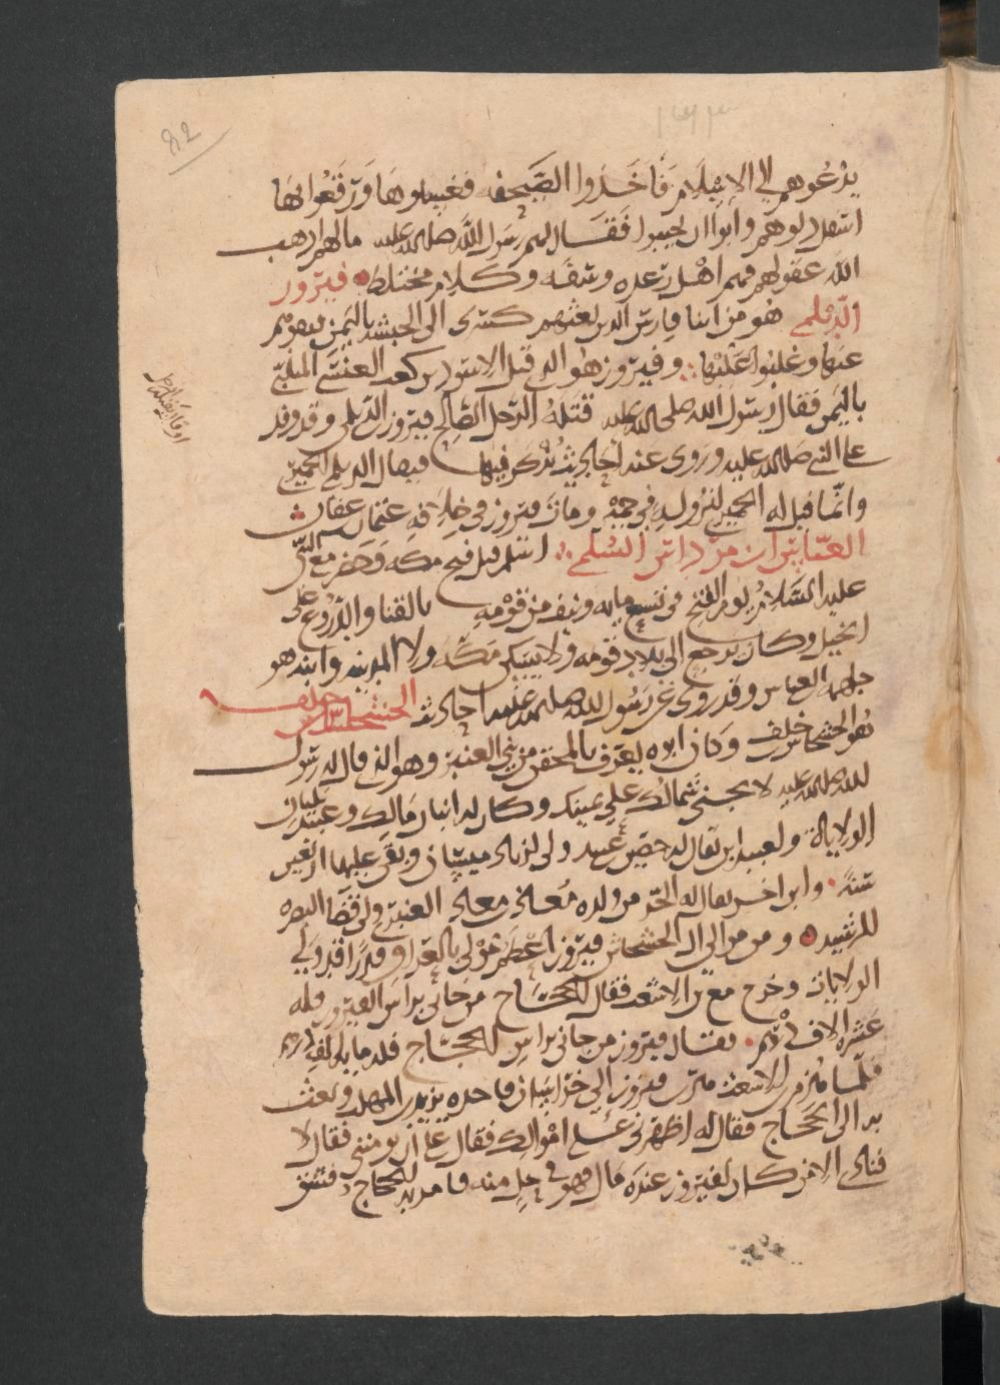 82
١٣٣
يدعوهم الى الاسلام فاخذوا الصحيفه فغسلوها ورقعوا بها
اسفل دلوهم وابوا ان يجيبوا فقال لهم رسول الله صلى الله عليه مالهم اذهب
الله عقولهم فهم اهل رعده وسفه وكلام مختلط فيروز
الديلمي هو من ابنا فارس الذين بعثهم كسرى الى الحبشه باليمن فهزموهم
عنها وغلبوا عليها وفيروز هو الذي قتل الاسود بن كعب العنسي المتنبي
باليمن فقال رسول الله صلى الله عليه قتله الرجل الصالح فيروز الديلمي وقد وفد
على النبي صلى الله عليه وروى عنه احاديث يذكر فيها فيقال الديلمي الحميري
وانما قيل له الحميري لنزوله في حمير ومات فيروز في خلافه عثمان بن عفان
العباس ابن مرداس السلمي اسلم قبل فتح مكه وحضر مع النبي
عليه السلام يوم الفتح في تسع مايه ونيف من قومه بالقنا والدروع على
الخيل وكان يرجع الى بلاد قومه ولا يسكن مكه ولا المدينه وابنه هو
جلهمه بن العباس وقد روى عن رسول الله صلى الله عليه احاديث الخشخاش بن خلف
هو الخشخاش بن خلف وكان ابوه يعرف بالمحقن من بني العنبر وهو الذي قال له رسول
الله صلى الله عليه لا يجني شمالك على يمينك وكان له ابنان مالك وعبيد يليان
الولاياه ولعبيد ابن يقال له حصين بن عبيد ولي لزياد ميسان وبقي عليها اربعين
سنه وابن اخر يقال له الحر من ولده معاذ بن معاذ العنبري ولي قضا البصره
للرشيد ومن موالي ال الخشخاش فيروز اعظم مولى بالعراق قدرا قد ولي
الولايات وخرج مع بن الاشعث فقال الحجاج من جاني براس الفيروز فله
عشره الاف درهم فقال فيروز من جاني براس الحجاج فله مايه الف درهم
فلما هزم بن الاشعث هرب فيروز الى خراسان فاخذه يزيد بن المهلب وبعث
به الى الحجاج فقال له اظهرني على اموالك فقال على ان يومنني فقال لا
فنادى الا من كان لفيروز عنده مال فهو في حل منه فامر به الحجاج فشق